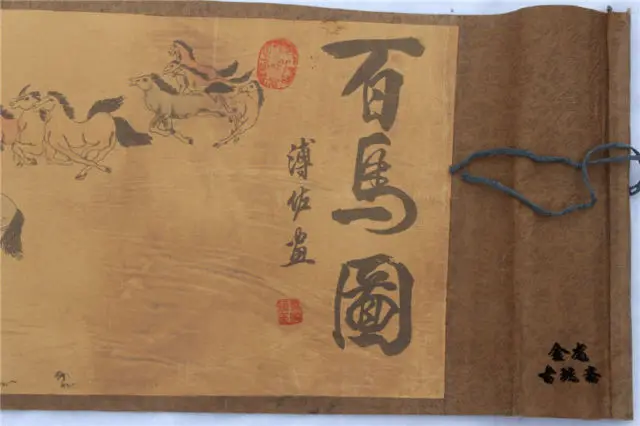 百馬圖
溥佐畫
金虎
古玩斋